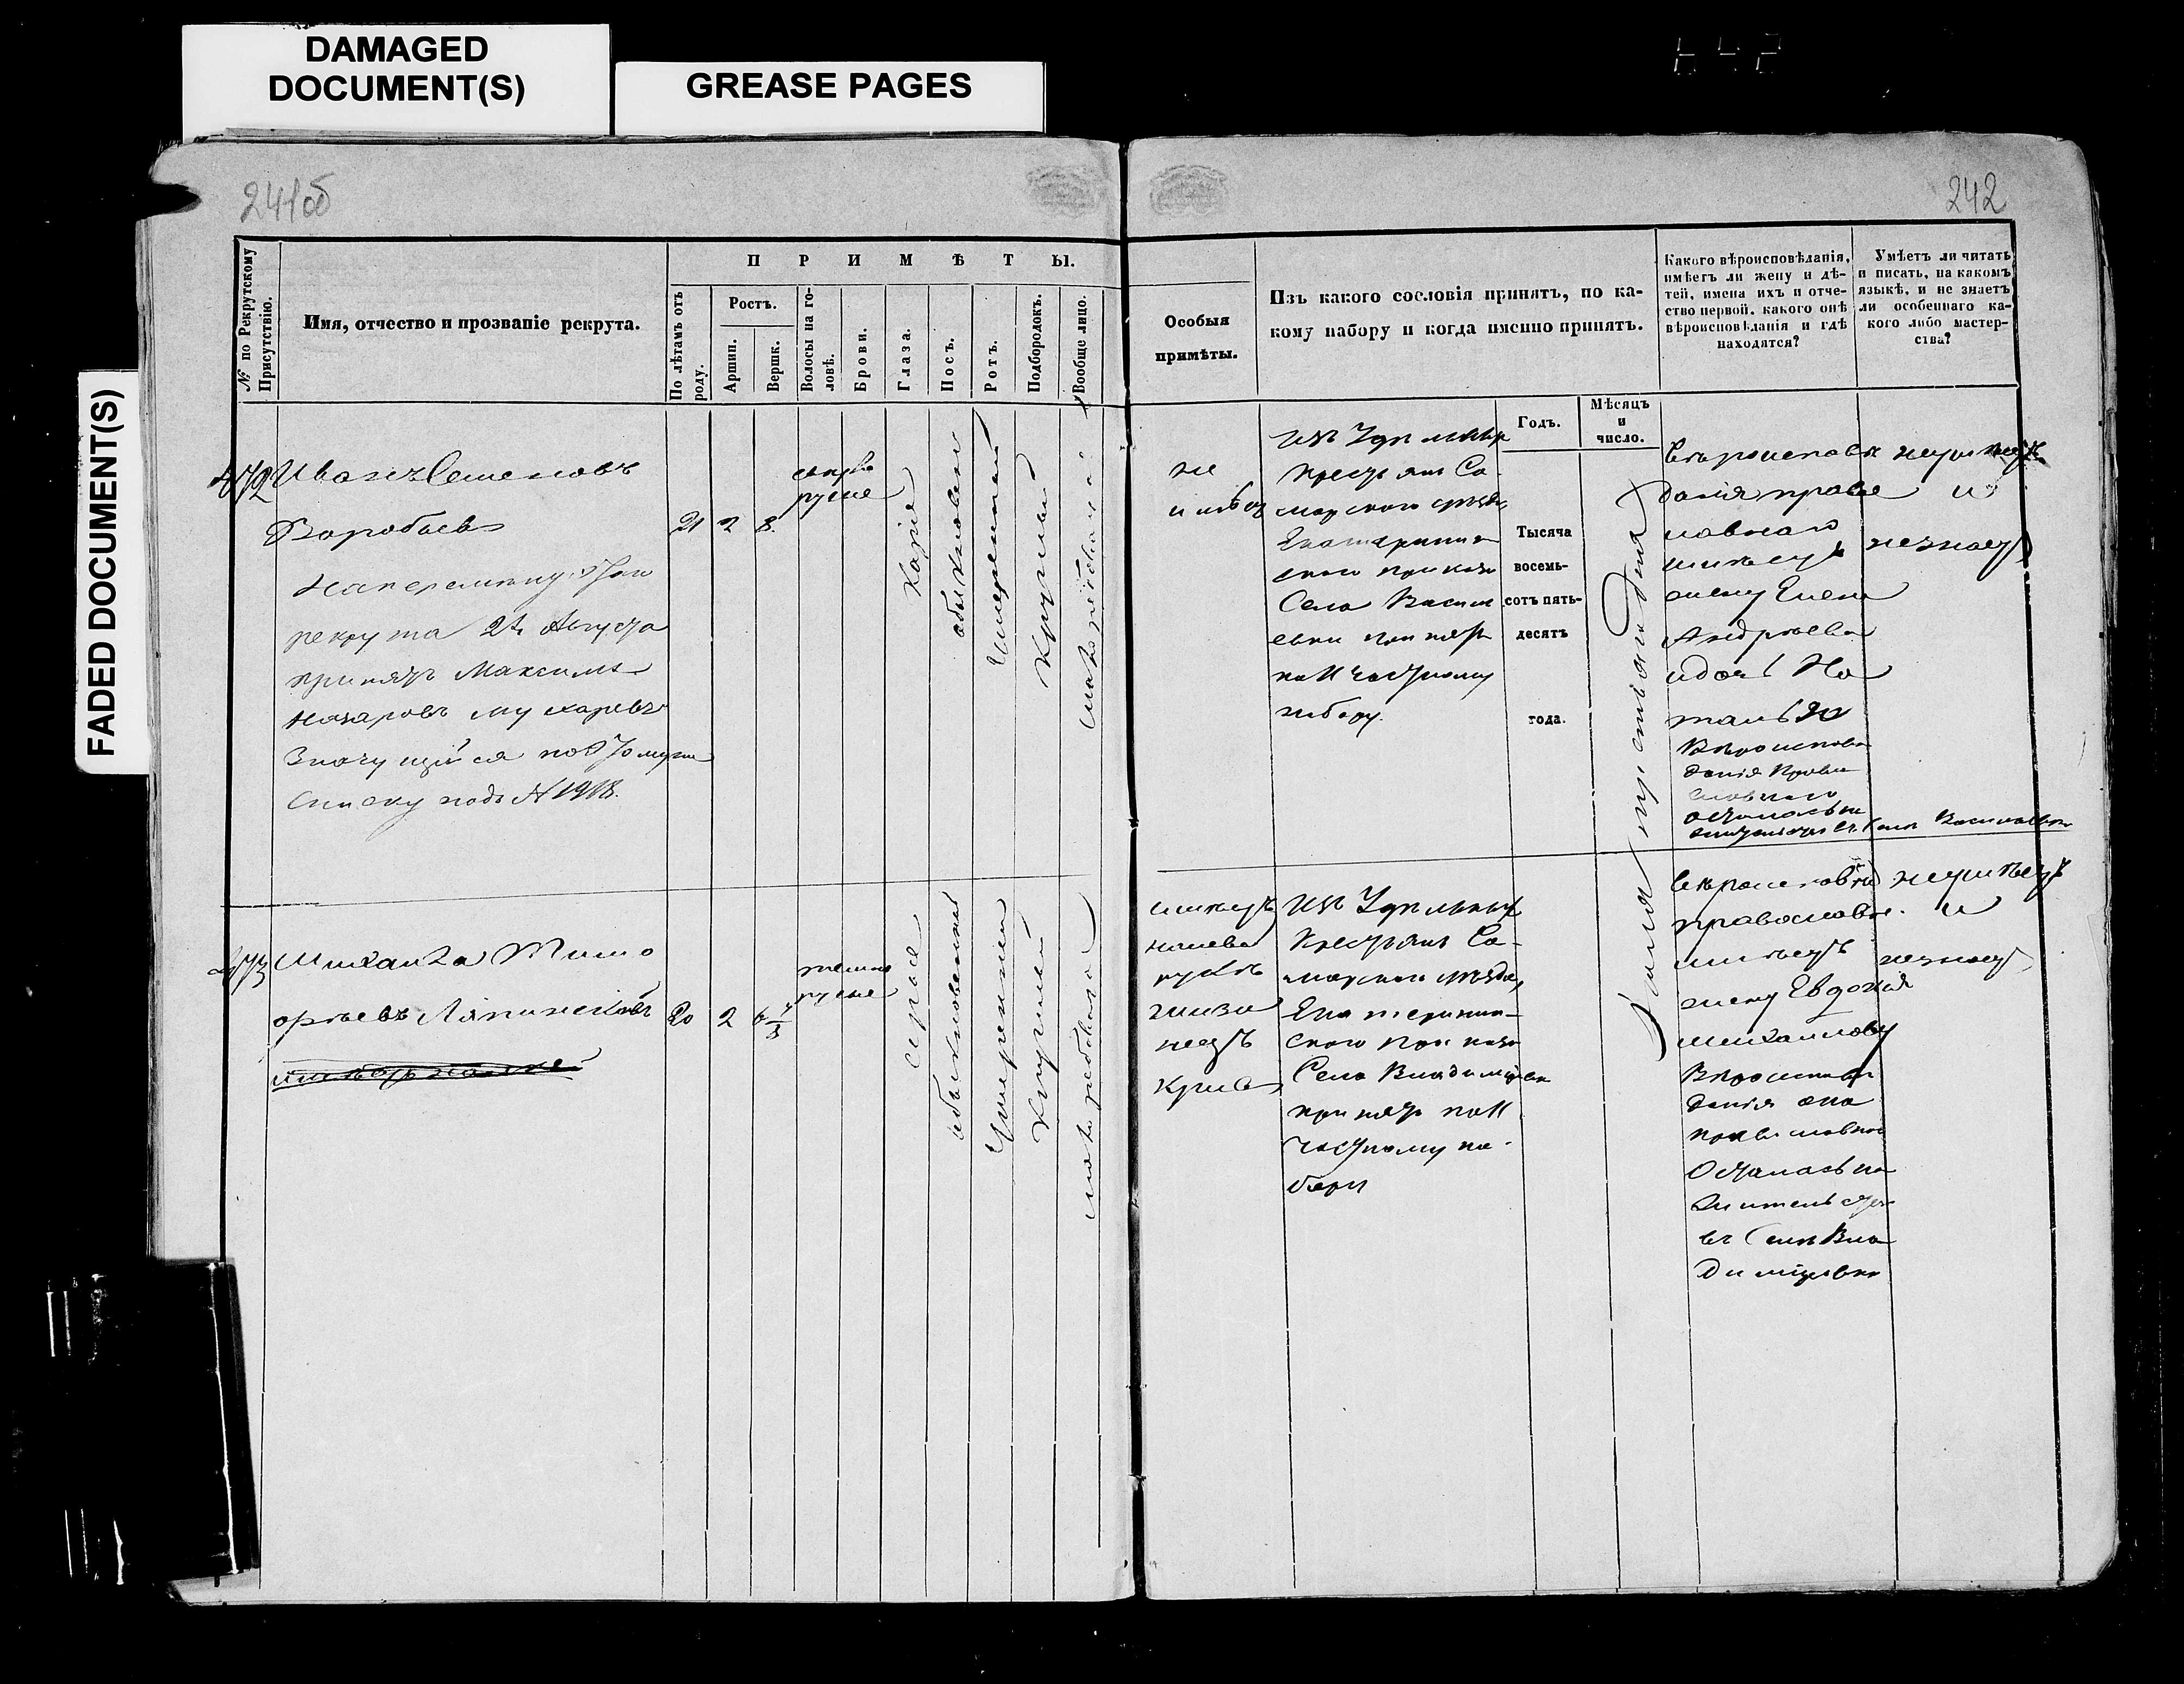 DAMAGED
DOCUMENT(S)
GREASE PAGES
FADED DOCUMENT(S)
241об
242
№ по Рекрутскому
Присутствію.
Имя, отчество и прозваніе рекрута.
ПРИМѢТЫ.
По лѣтамъ отъ
роду.
Ростъ.
Аршин.
Вершк.
Волосы на го-
ловѣ.
Брови.
Глаза.
Носъ.
Ротъ.
Подбородокъ.
Вообще лицо.
Особыя
примѣты.
Изъ какого сословія принятъ, по ка-
кому набору и когда именно принятъ.
Годъ.
Мѣсяцъ
и
число.
Какого вѣроисповѣданія,
имѣетъ ли жену и дѣ-
тей, имена ихъ и отче-
ство первой, какого онѣ
вѣроисповѣданія и гдѣ
находятся?
Умѣетъ ли читать
и писать, на какомъ
языкѣ, и не знаетъ
ли особеннаго ка-
кого либо мастер-
ства?
Тысяча
восемь-
сотъ пять-
десятъ
года.
472
Иванъ Семеновъ
Воробьевъ
рекрута 24 Августа
принятъ Максимъ
Назаровъ
Значущійся по
списку подъ № 1918.
21 2 8
русые
Каріе
обыкновен
Умеренный
Круглый
не
имѣет
Изъ Удельных
Крестьянъ Са-
марского уезда,
Екатеринин
ского приказа
Села Василь
евки принятъ
по II частному
набору.
Вероисповѣ
данія право
славнаго
имѣетъ
жену Елену
Андрееву
и дочь На
талью
Вероисповѣ
данія Право
славного
осталась на
жительстве въ Селе Васильевки
неумеетъ
и
незнаетъ
473
Михайла Тимо
офеевъ Ляпинсковъ
20 2 6
темно
русые
серые
обыкновенный
Умеренный
Круглый
имѣетъ
налевой
рукѣ
мизи
нецъ
кривъ
Изъ Удельныхъ
Крестьянъ Са-
марского уезда,
Екатеринин-
ского приказа
Села Владиміровки
принятъ по II
частному на-
бору
вероисповѣд
православн.
имѣетъ
жену Евдокія
Михайлову
Вероиспове
данія она
православно
Осталась на
жительстве
въ Селе Вла
диміровки
неумѣетъ
и
незнает